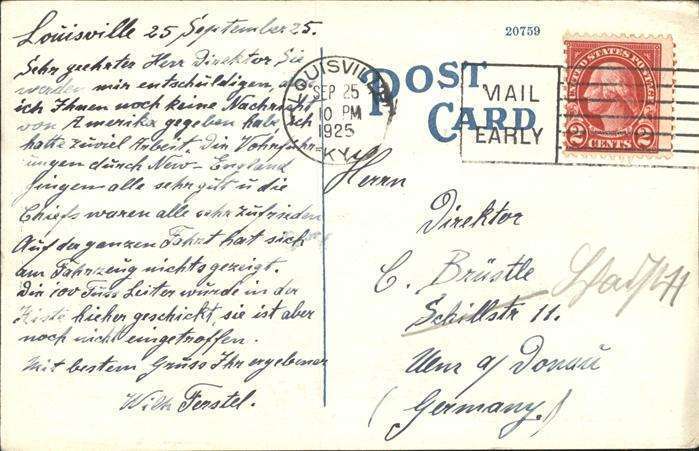 Louisville 25 September 25.
Sehr geehrter Herr Direktor Sie
werden mir entschuldigen,
ich Ihnen noch keine Nachricht
von Amerika gegeben habe ich
hatte zuviel Arbeit. Die Vorführ=
ungen durch New-England
gingen alle sehr gut u die
Chiefs waren alle sehr zufrieden
Auf der ganzen Fahrt hat sich
am Fahrzeug nichts gezeigt.
Die 100 Fuss Leiter wurde in der
Kiste hieher geschickt, sie ist aber
noch nicht eingetroffen.
Mit bestem Gruss Ihr ergebener
Wilh Ferstel.
20759
POST
CARD
LOUISVILLE
SEP 25
10 PM
1925
KY.
MAIL
EARLY
UNITED STATES POSTAGE
2 CENTS 2
Herrn
Direktor
C. Brüstle
Schillstr 11.
Ulm a/ Donau
(Germany.)